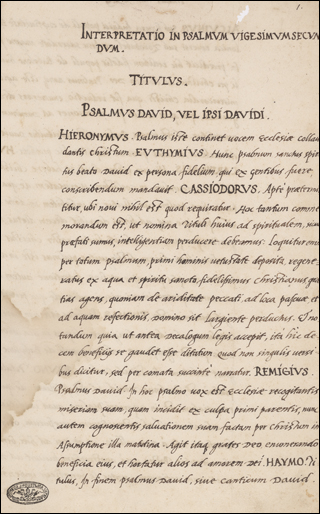 1.
INTERPRETATIO IN PSALMVM VIGESIMVM SECVN
DVM.
TITVLVS.
PSALMVS DAVID, VEL IPSI DAVIDI.
HIERONYMVS. Psalmus iste continet vocem Ecclesiæ collau
dantis Christum. EVTHYMIVS. Hunc psalmum sanctus spiri
tus beato David ex persona fidelium, qui ex gentibus fuere,
conscribendum mandavit. CASSIODORVS. Apte prætermi
titur, ubi novi nihil est quod requiratur. Hoc tantum comme
morandum est, ut nomina tituli huius, ad spiritualem, sicut
præfati sumus, intelligentiam perducere debeamus. Loquitur enim
per totum psalmum, primi hominis vetustate deposita regene
ratus ex aqua et spiritu sancto, fidelissimus christianus gra
tias agens, quoniam de ariditate peccati, ad loca pascuæ et
ad aquam refectionis, Domino sit largiente perductus. Et no
tandum quia, ut antea decalogum legis accepit, ita hic de
cem beneficijs se gaudet esse ditatum quod non singulis versi
bus dicitur, sed per comata succinte narratur. REMIGIVS.
Psalmus David. In hoc psalmo vox est Ecclesiæ recogitantis
miseriam suam, quam incidit ex culpa primi parentis, nunc
autem cognoscentis salvationem suam factam per Christum in
Assumptione illa matutina. Agit itaq. grates Deo enumerando
beneficia eius, et hortatur alios ad amorem Dei. HAYMO. Ti
tulus, In finem psalmus David, sive canticum David.